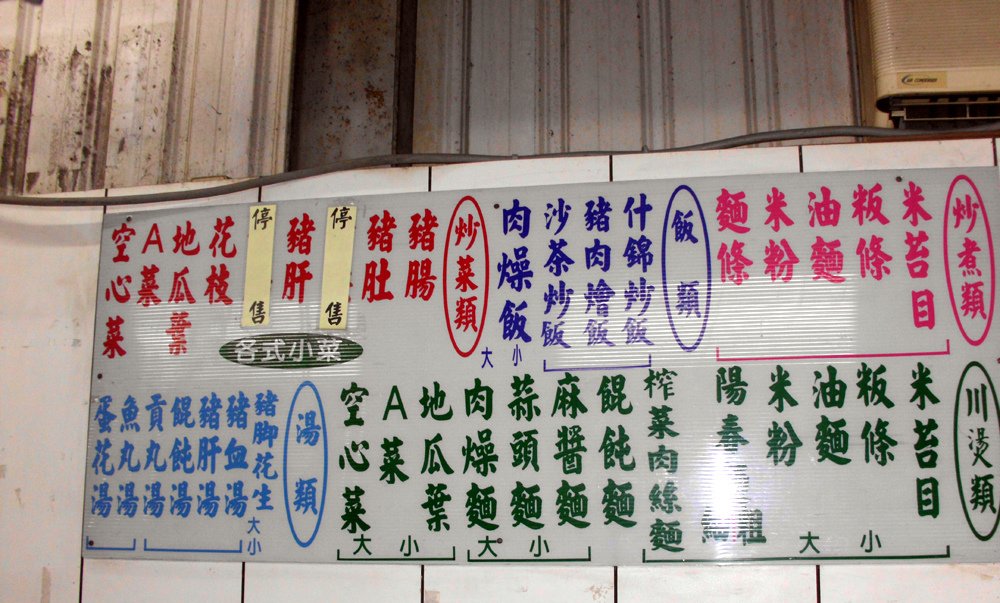 炒煮類
米苔目
粄條
油麵
米粉
麵條
飯類
什錦炒飯
豬肉燴飯
沙茶炒飯
肉燥飯
大 小
炒菜類
豬腸
豬肚
停售
豬肝
停售
花枝
地瓜葉
A菜
空心菜
各式小菜
川燙類
米苔目
粄條
油麵
米粉
陽春麵
粗
細
大 小
榨菜肉絲麵
餛飩麵
麻醬麵
蒜頭麵
肉燥麵
大 小
地瓜葉
A菜
空心菜
大 小
湯類
豬腳花生
大 小
豬血湯
豬肝湯
餛飩湯
貢丸湯
魚丸湯
蛋花湯
AIR CONDITIONER